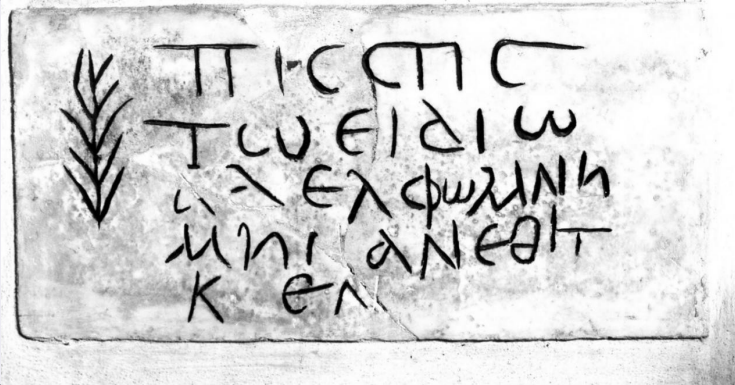 Τω ΕΙΔΙω
ΑΔΕΛΦω ΜΝΗ
ΜΗΝ ΑΝΕΘΗ
ΚΕΝ